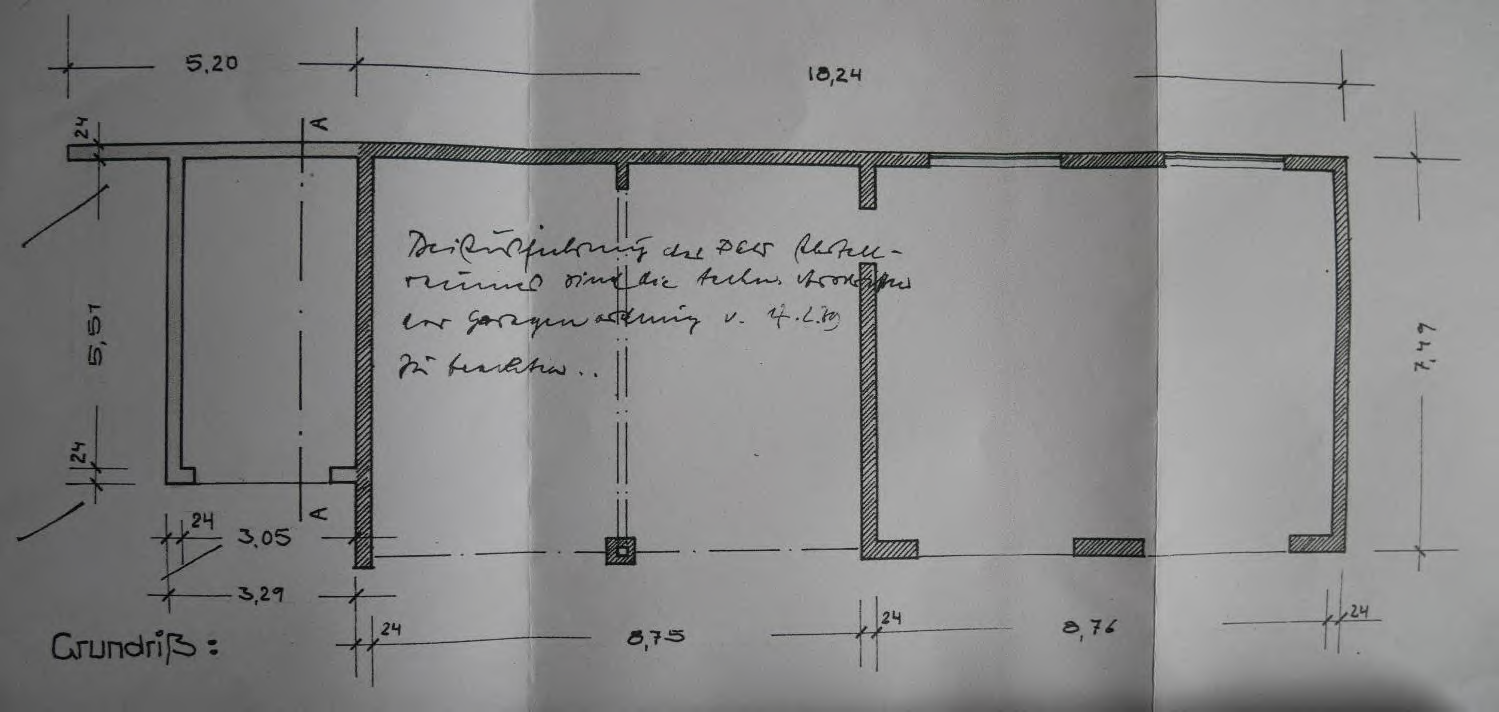 5,20
18,24
24
A
Bei Ausführung der PKW Abstell-
räume sind die techn. Vorschriften
der Garagenordnung v.
zu beachten..
5,51
7,49
24
A
24
3,05
3,29
24
8,75
24
8,76
24
Grundriß: